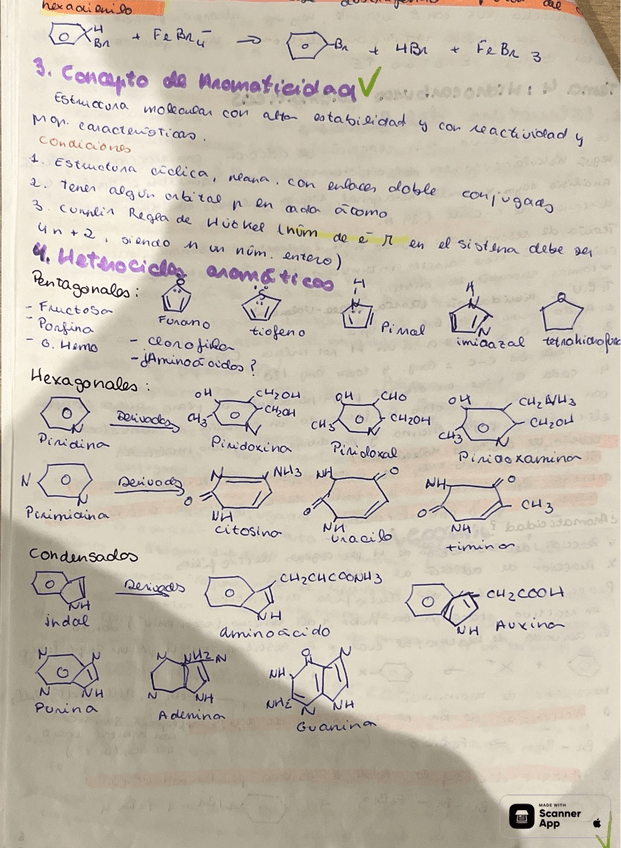 hexadienilo
H
Br + FeBr4⁻ → Br + HBr + FeBr3
3. Concepto de Aromaticidad ✓
Estructura molecular con alta estabilidad y con reactividad y
prop. características.
Condiciones
1. Estructura cíclica, plana, con enlaces doble conjugados
2. Tener algún orbital p en cada átomo
3. Cumplir Regla de Hückel (núm de e⁻ π en el sistema debe ser
4n+2, siendo n un núm. entero)
4. Heterociclos aromáticos
Pentagonales:
- Fructosa
- Porfina
- G. Hemo
- Clorofila
- ¿Aminoácidos?
O
Furano
S
tiofeno
H
N
Pirrol
H
N
N
imidazol
O
tetrahidrofurano
Hexagonales:
N
Piridina
Derivados
OH CH2OH
CH3 CH2OH
N
Piridoxina
OH CHO
CH3 CH2OH
N
Piridoxal
OH CH2NH3
CH3 CH2OH
N
Piridoxamina
N
N
Pirimidina
Derivados
N NH3
O
NH
Citosina
NH O
O
NH
Uracilo
NH O
O CH3
NH
timina
Condensados
NH
indol
Derivados
CH2CHCOONH3
NH
aminoácido
CH2COOH
NH
Auxina
N N
N NH
Purina
NH2 N
N
NH
Adenina
O N
NH
NH2 N NH
Guanina
MADE WITH
Scanner
App